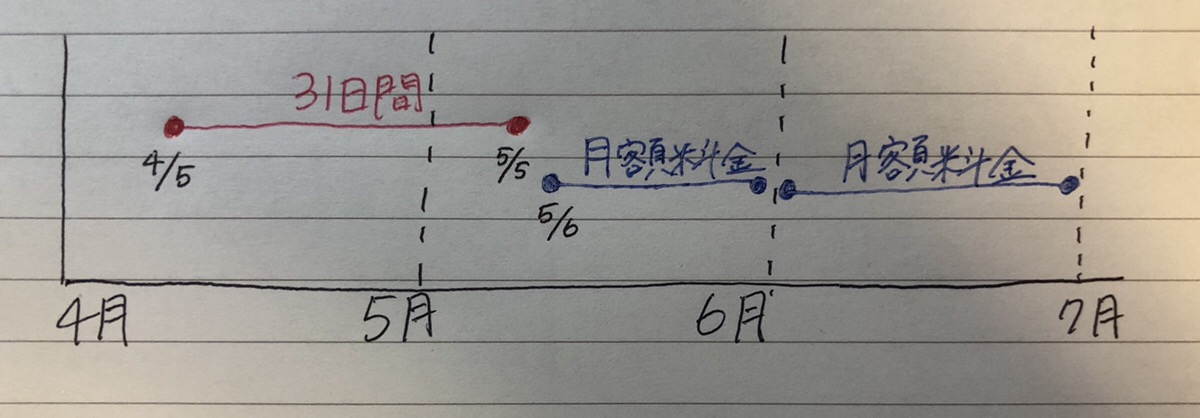 31日間
4/5
5/5
月額料金
月額料金
5/6
4月
5月
6月
7月